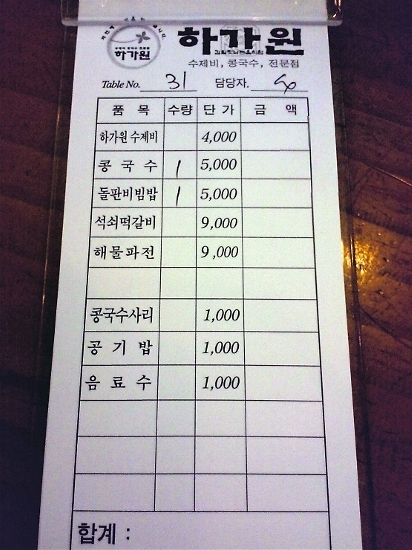 하가원
하가원
수제비, 콩국수, 전문점
Table No. 31 담당자.
품 목 수량 단 가 금 액
하가원수제비 4,000
콩 국 수 1 5,000
돌판비빔밥 1 5,000
석쇠떡갈비 9,000
해물파전 9,000
콩국수사리 1,000
공 기 밥 1,000
음 료 수 1,000
합계 :